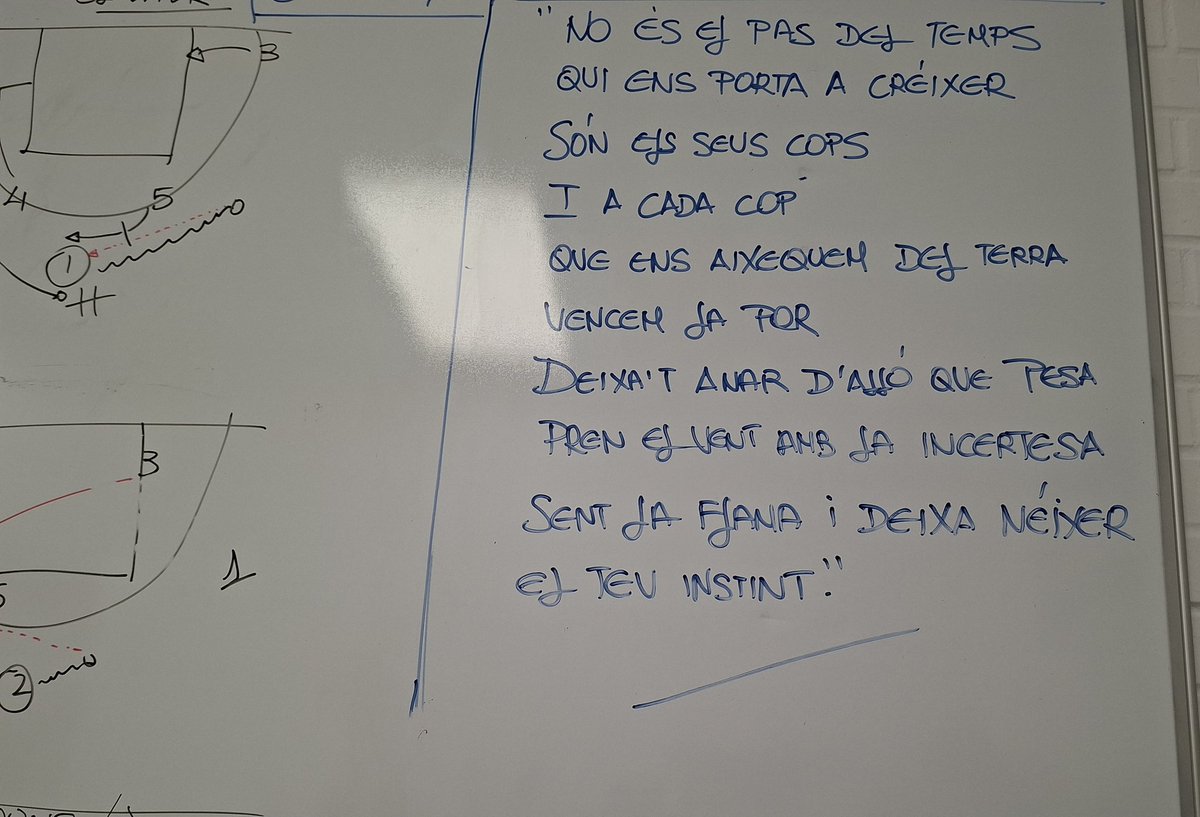 3
4
5
1
H
B
1
2
"NO ÉS EL PAS DEL TEMPS
QUI ENS PORTA A CRÉIXER
SÓN ELS SEUS COPS
I A CADA COP
QUE ENS AIXEQUEM DEL TERRA
VENCEM LA POR
DEIXA'T ANAR D'ALLÓ QUE PESA
PREN EL VENT AMB LA INCERTESA
SENT LA FLANA i DEIXA NÉIXER
EL TEU INSTINT."